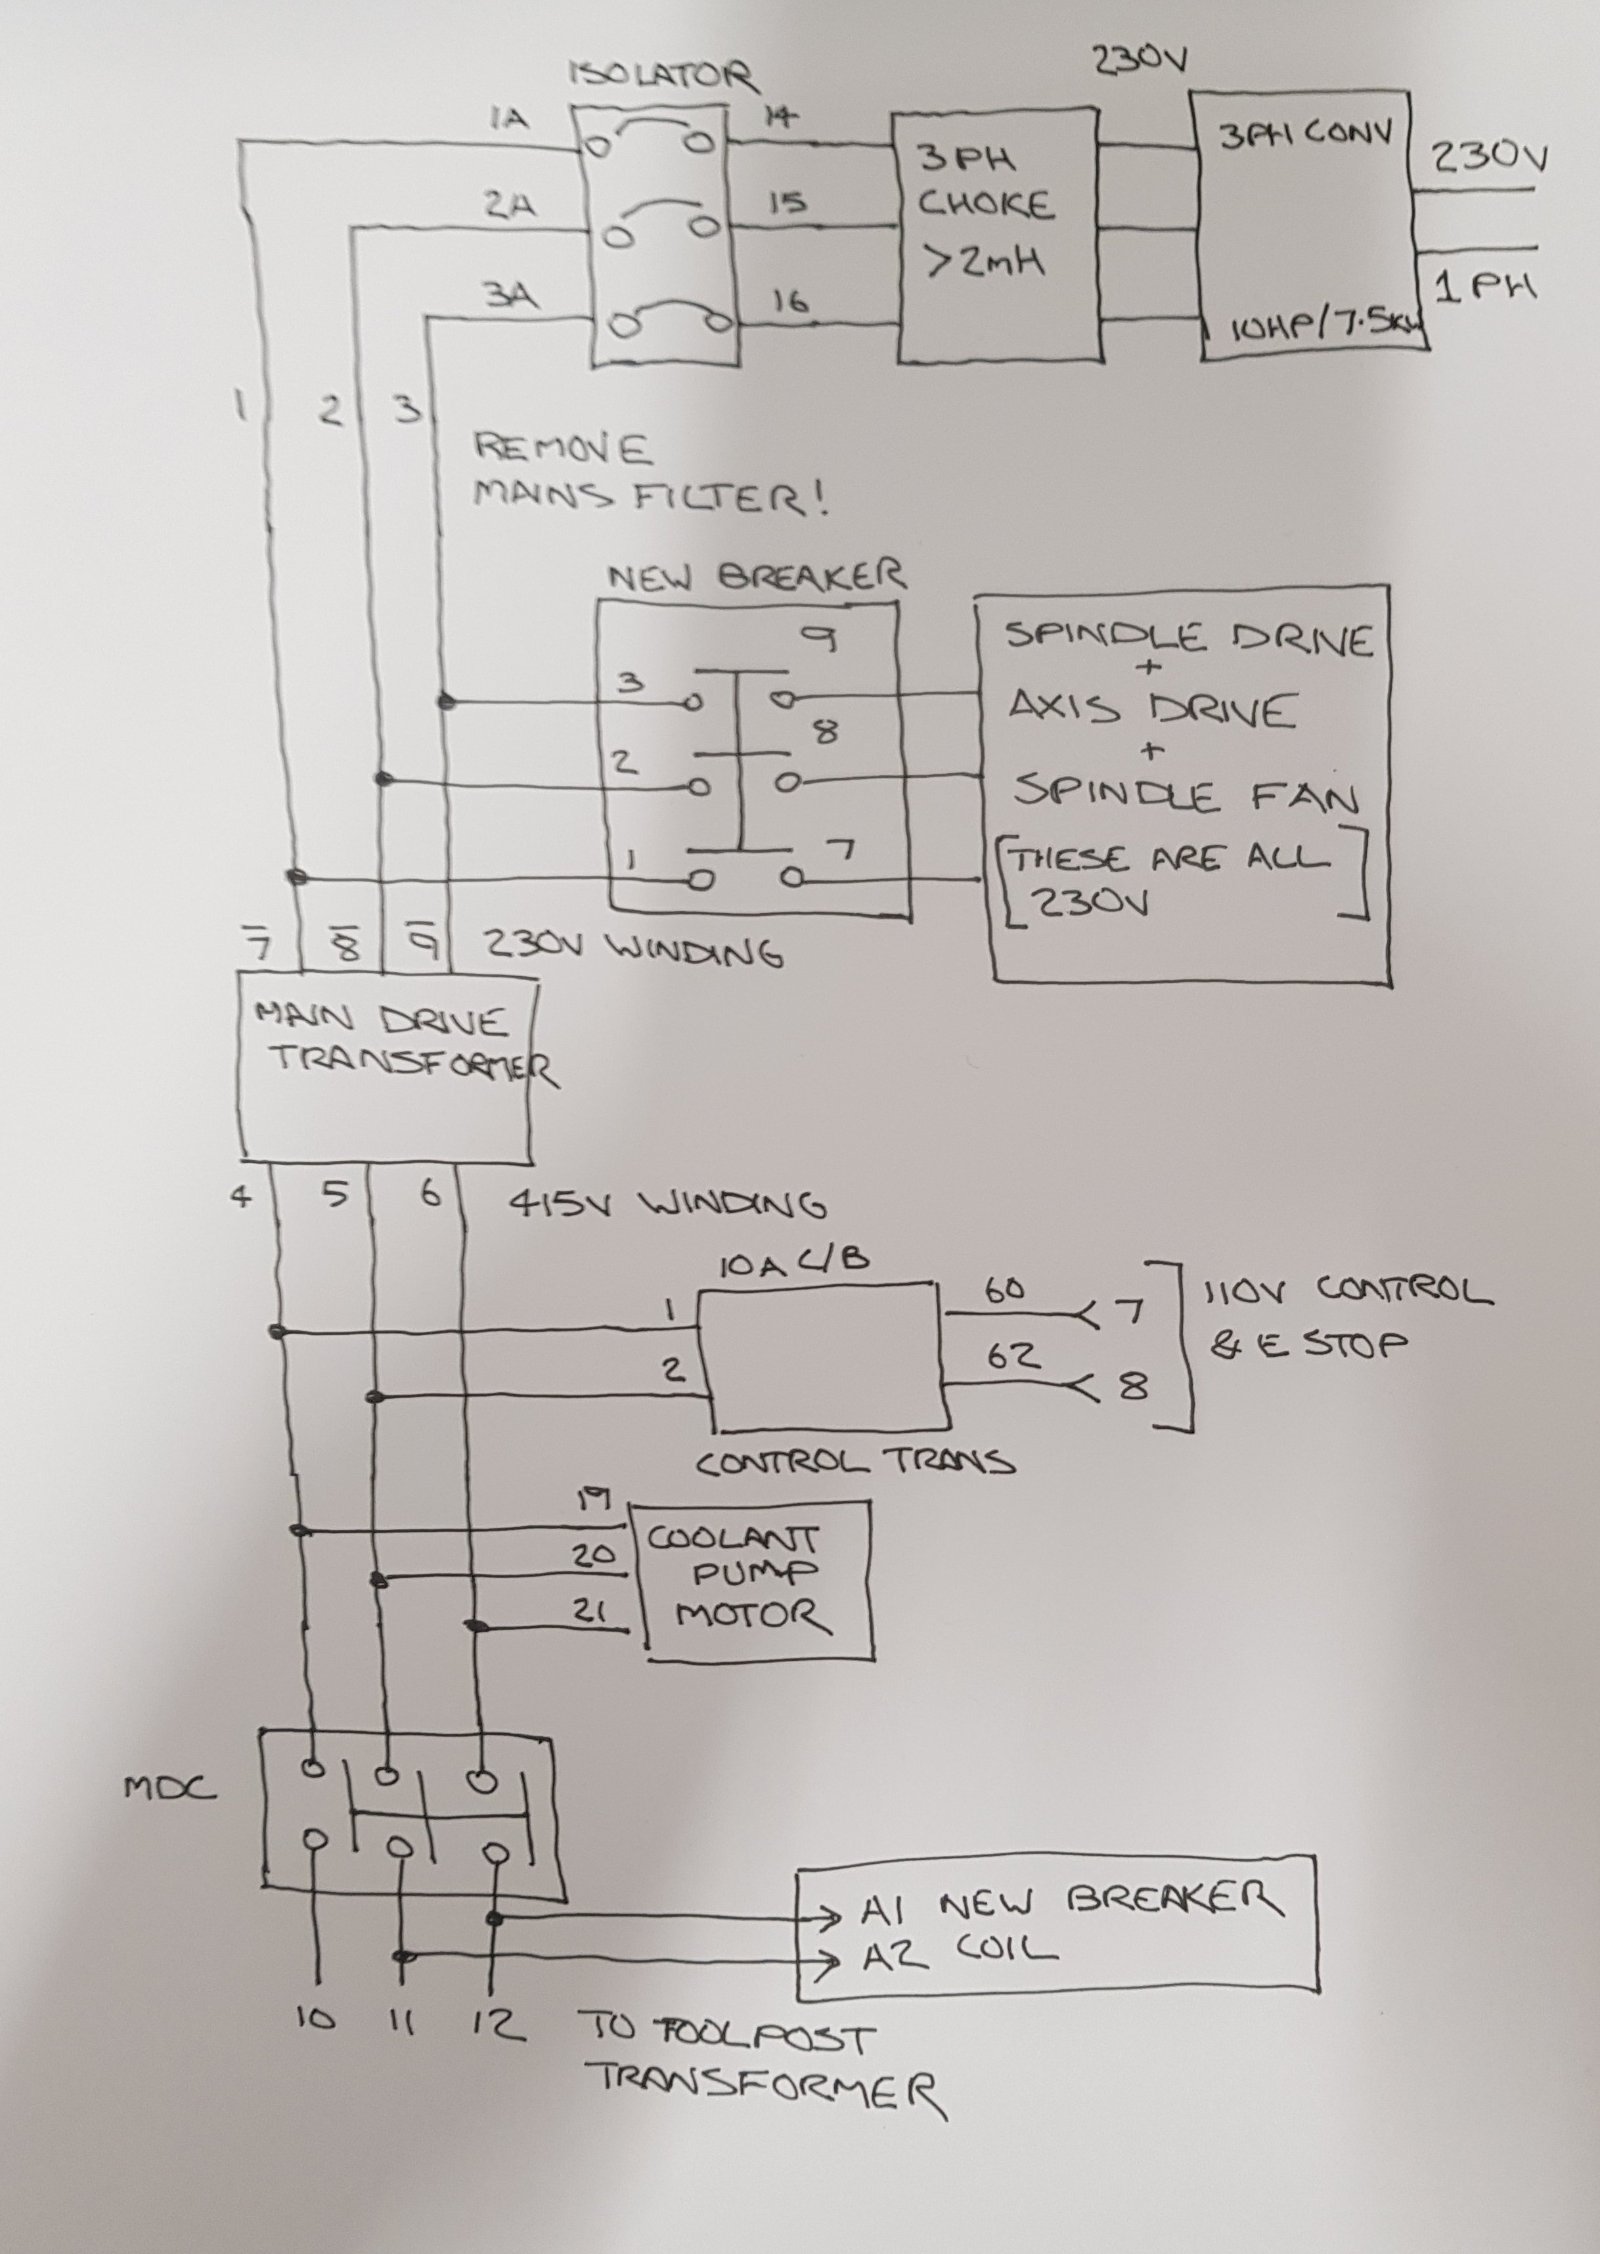 230V
ISOLATOR
1A
14
3PH CONV
3 PH
230V
2A
15
CHOKE
>2mH
3A
16
1 PH
10HP/7.5KW
1
2
3
REMOVE
MAINS FILTER!
NEW BREAKER
9
SPINDLE DRIVE
3
+
8
AXIS DRIVE
2
+
SPINDLE FAN
1
7
[THESE ARE ALL
230V]
7
8
9
230V WINDING
MAIN DRIVE
TRANSFORMER
4
5
6
415V WINDING
10A C/B
1
60
7
110V CONTROL
2
62
8
& E STOP
CONTROL TRANS
19
COOLANT
20
PUMP
21
MOTOR
MDC
A1 NEW BREAKER
A2 COIL
10
11
12
TO TOOLPOST
TRANSFORMER